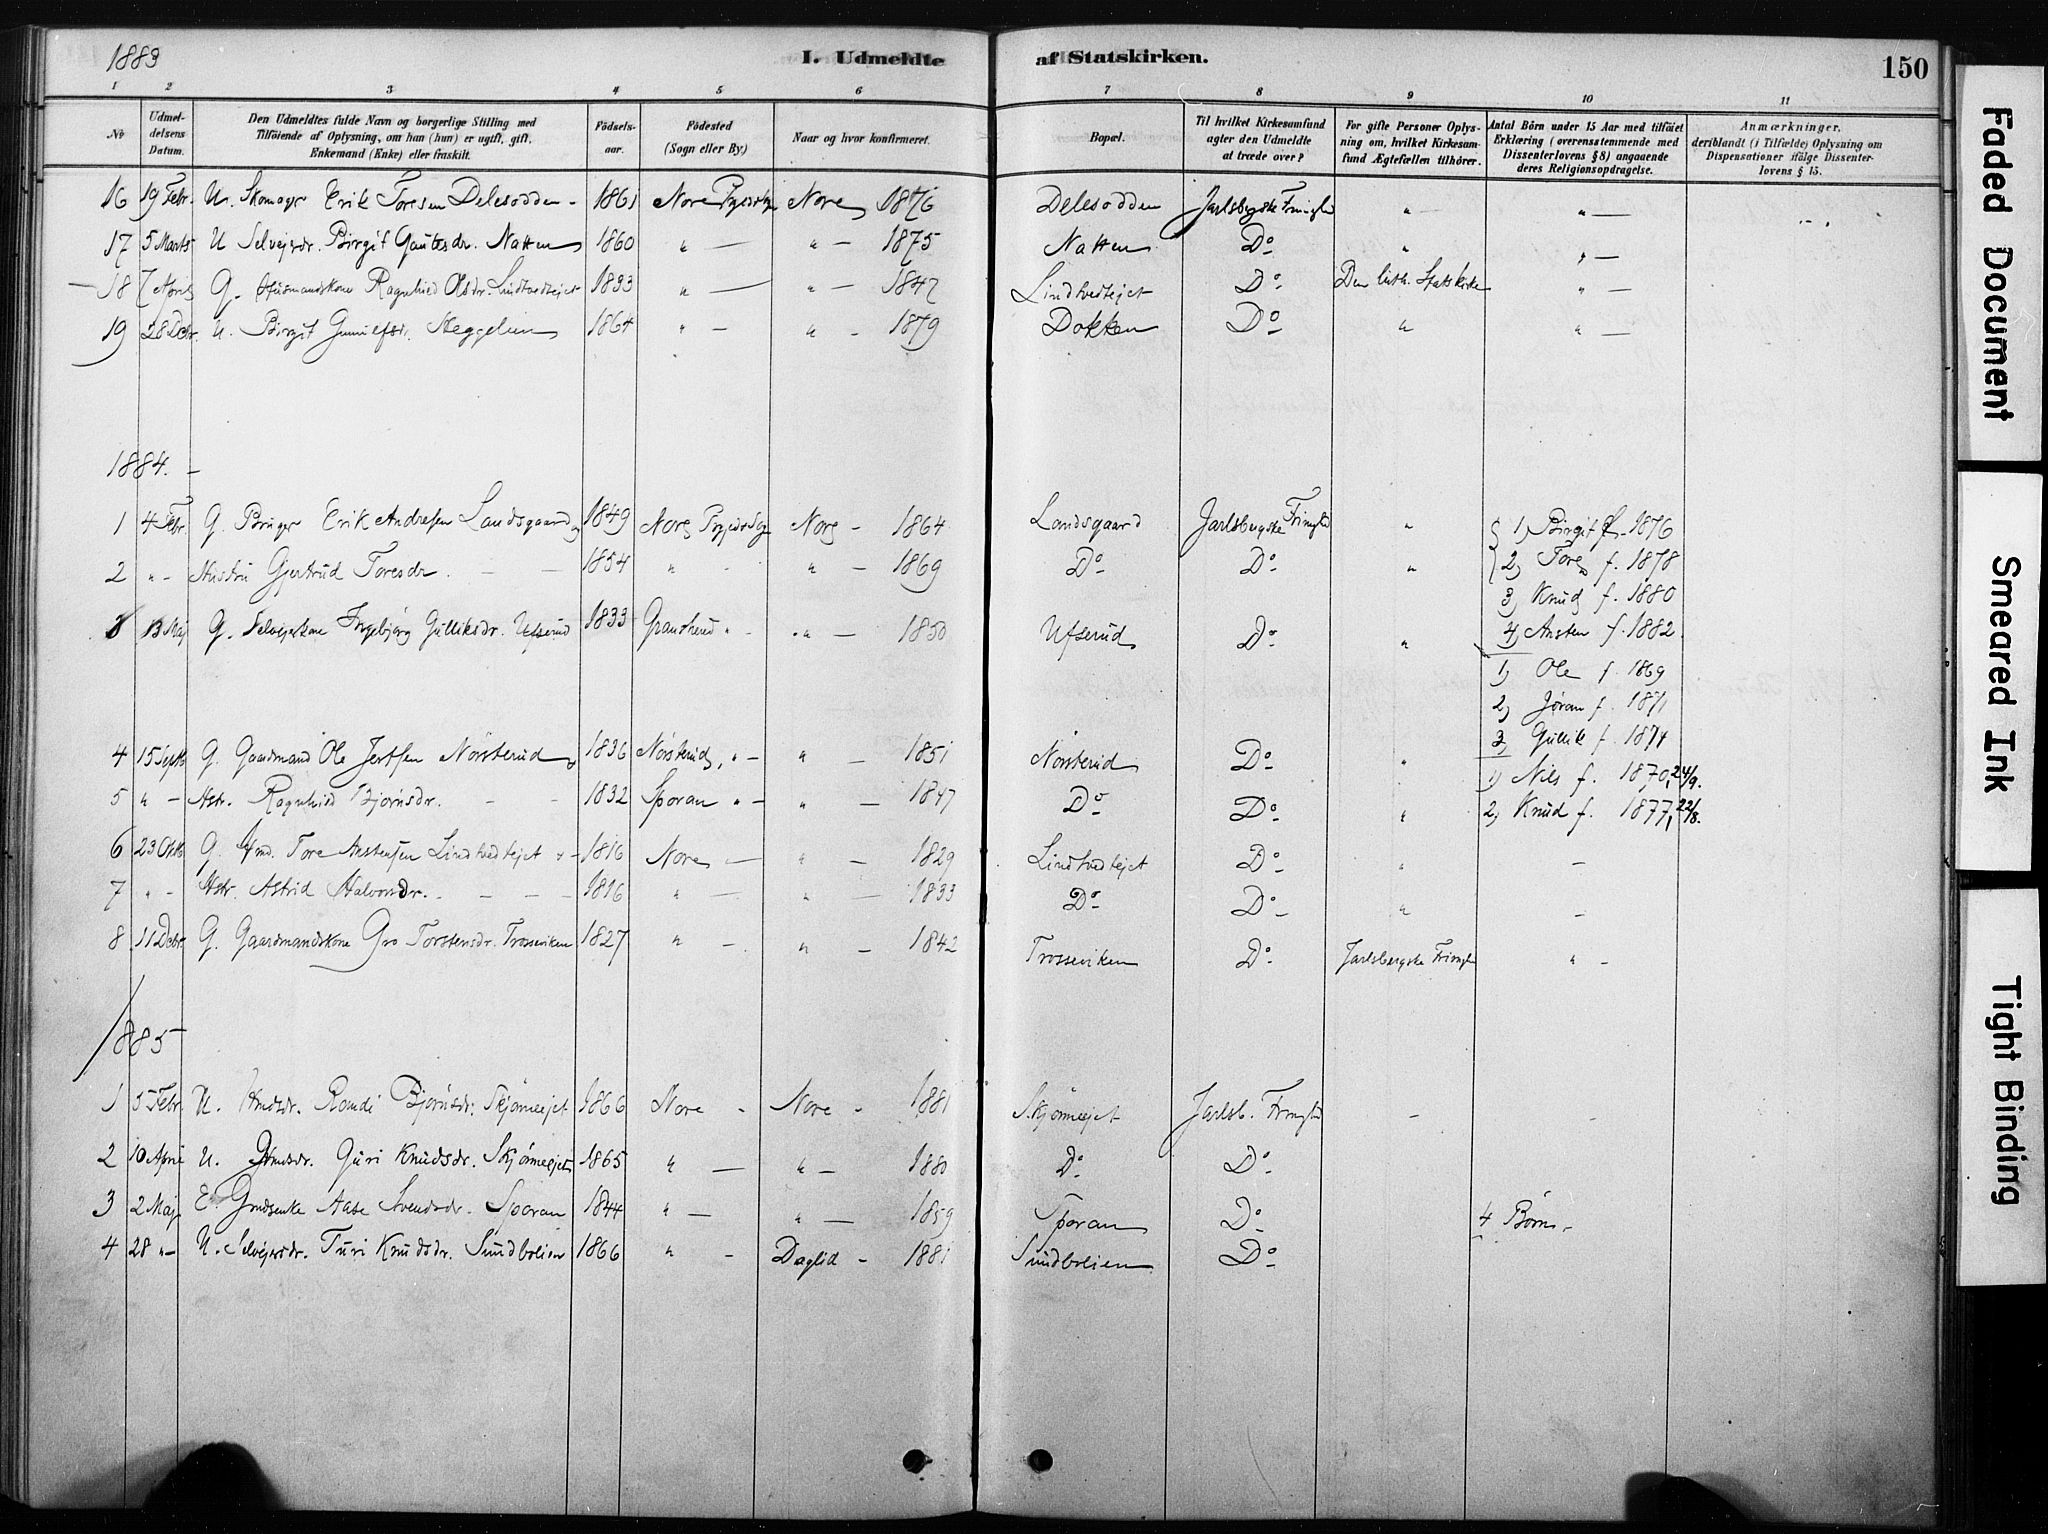 1883
I. Udmeldte af Statskirken.
150
1 2 3 4 5 6 7 8 9 10 11
No
Udmeldelsens Datum.
Den Udmeldtes fulde Navn og borgerlige Stilling med Tilföiende af Oplysning, om han (hun) er ugift, gift, Enkemand (Enke) eller fraskilt.
Födselsaar.
Födested (Sogn eller By.)
Naar og hvor konfirmeret.
Bopæl.
Til hvilket Kirkesamfund agter den Udmeldte at træde over?
For gifte Personer Oplysning om, hvilket Kirkesamfund Ægtefællen tilhörer.
Antal Börn under 15 Aar med tilföiet Erklæring (overensstemmende med Dissenterlovens § 8) angaaende deres Religionsopdragelse.
Anmærkninger, deriblandt (i Tilfælde) Oplysning om Dispensationer ifölge Dissenterlovens § 15.
16 19 Febr. U. Skomager Erik Toresen Delesodden - 1861 Nore Nore 1876 Delesodden Jarlsbergske " " —
17 5 Marts U Selvejerdr. Birgit Gautesdr. Natten 1860 " — " — 1875 Natten Do " " —
18 7 April G. Husmandskone Ragnhild Olsdr. Lindtvedtejet 1833 " — " — 1847 Lindtvedtejet Do Den luth. Statskirke " —
19 28 Debr. U. Birgit Heggelien 1864 " — " — 1879 Dokken Do " " —
1884. -
1 4 Febr. G. Bruger Erik Andresen Landsgaard 1849 Nore Nore - 1864 Landsgaard Jarlsbergske " 1) Birgit f. 1876
2 " - Hustru Gjertrud Toresdr. - - 1854 " - " — 1869 Do Do " 2) Tore f. 1878
3) Knud f. 1880
3 13 Maj G. Selvejerkone Ingebjørg Gulliksdr. Ufserud 1833 Gransherred " - " — 1850 Ufserud Do " 4) Austen f. 1882
1) Ole f. 1869
2) Jøran f. 1871
3) Gullik f. 1874
4 15 Septb G. Gaardmand Ole Nörsterud 1836 Nörsterud, " - " — 1851 Nörsterud Do " 1) Nils f. 1870, 24/9.
5 " - Hstr. Ragnhild Bjørnsdr. - - 1832 Sporan " - " — 1847 Do Do " 2) Knud f. 1877, 22/8.
6 23 Oktb G. Tore Austensen Lindtvedtejet 1816 Nore — " — 1829 Lindtvedtejet Do " —
7 " - Hstr. Astrid Halvorsdr. - - - 1816 " — " — 1833 Do Do " —
8 11 Debr G. Gaardmandskone Gro Torstensdr. Trosseviken 1827 " - " — 1842 Trosseviken Do Jarlsbergske " —
1885
1 5 Febr. U. Randi Bjørnsdr. Skjønneejet 1866 Nore - Nore - 1881 Skjønneejet Jarlsb. -
2 10 April U. Guri Knudsdr. Skjønneejet 1865 " — " — 1880 Do Do
3 2 Maj E. Aase Svendsdr. Sporan 1844 " — " — 1859 Sporan Do 4 Børn -
4 28 " - U. Selvejerdr. Turi Knudsdr. Sundbolien 1866 " - Daglid - 1881 Sundbolien Do
Faded Document
Smeared Ink
Tight Binding